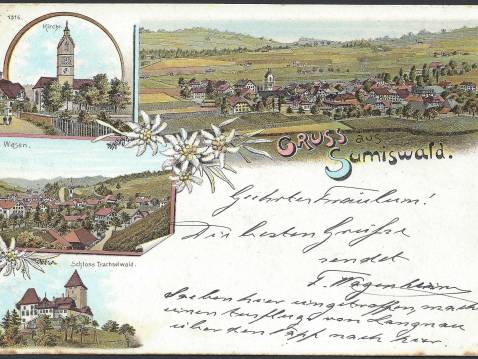 1316.
Kirche.
GRUSS aus
Sumiswald.
Wasen.
Geehrtes Fräulein!
Die besten Grüsse
sendet
F. Wagenheim
Schloss Trachselwald.
Soeben hier eingetroffen, nach
einem Ausflug von Langnau
über den nach hier.